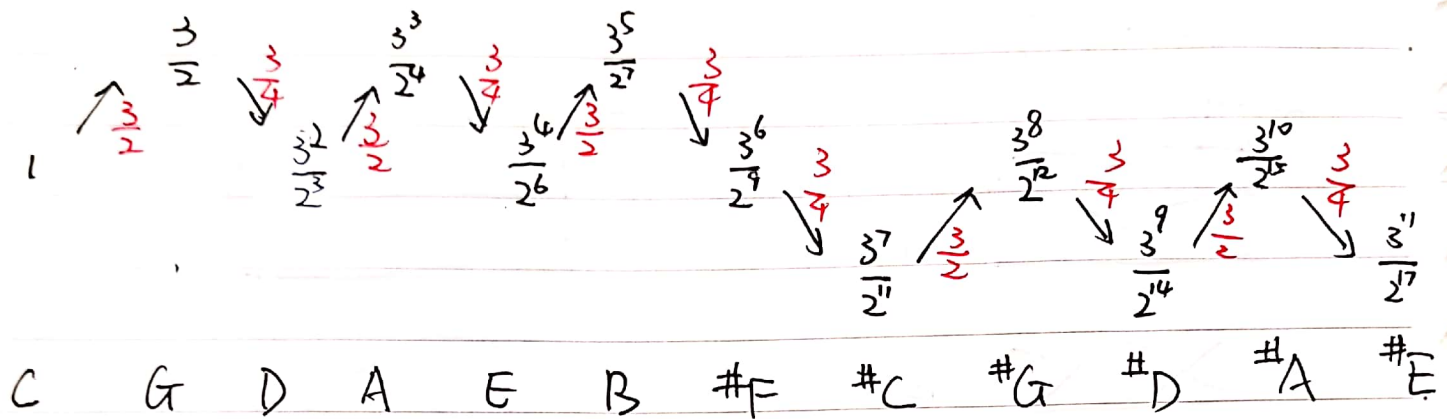 1
3/2
3/2
3/4
3²/2³
3/2
3³/2⁴
3/4
3⁴/2⁶
3/2
3⁵/2⁷
3/4
3⁶/2⁹
3/4
3⁷/2¹¹
3/2
3⁸/2¹²
3/4
3⁹/2¹⁴
3/2
3¹⁰/2¹⁵
3/4
3¹¹/2¹⁷
C G D A E B #F #C #G #D #A #E